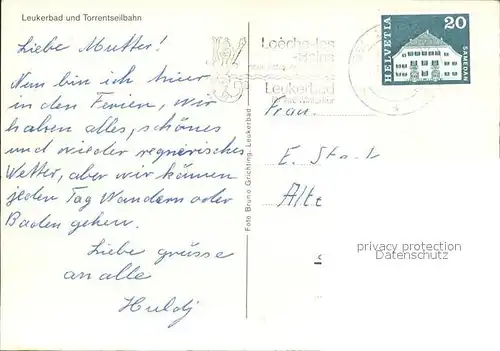 Leukerbad und Torrentseilbahn
Liebe Mutter!
Nun bin ich hier
in den Ferien, wir
haben alles, schönes
und wieder regnerisches
Wetter, aber wir können
jeden Tag Wandern oder
Baden gehen.
Liebe grüsse
an alle
Huldj
Foto Bruno Grichting, Leukerbad
Loèche-les
-Bains
Leukerbad
HELVETIA
20
SAMEDAN
Frau
E.
Alt
privacy protection
Datenschutz